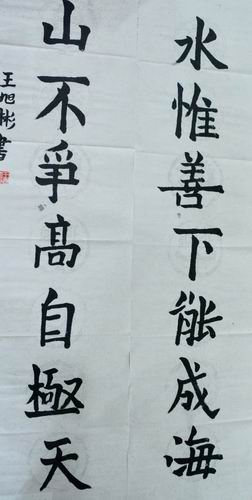 水惟善下能成海
山不爭高自極天
王旭彬書